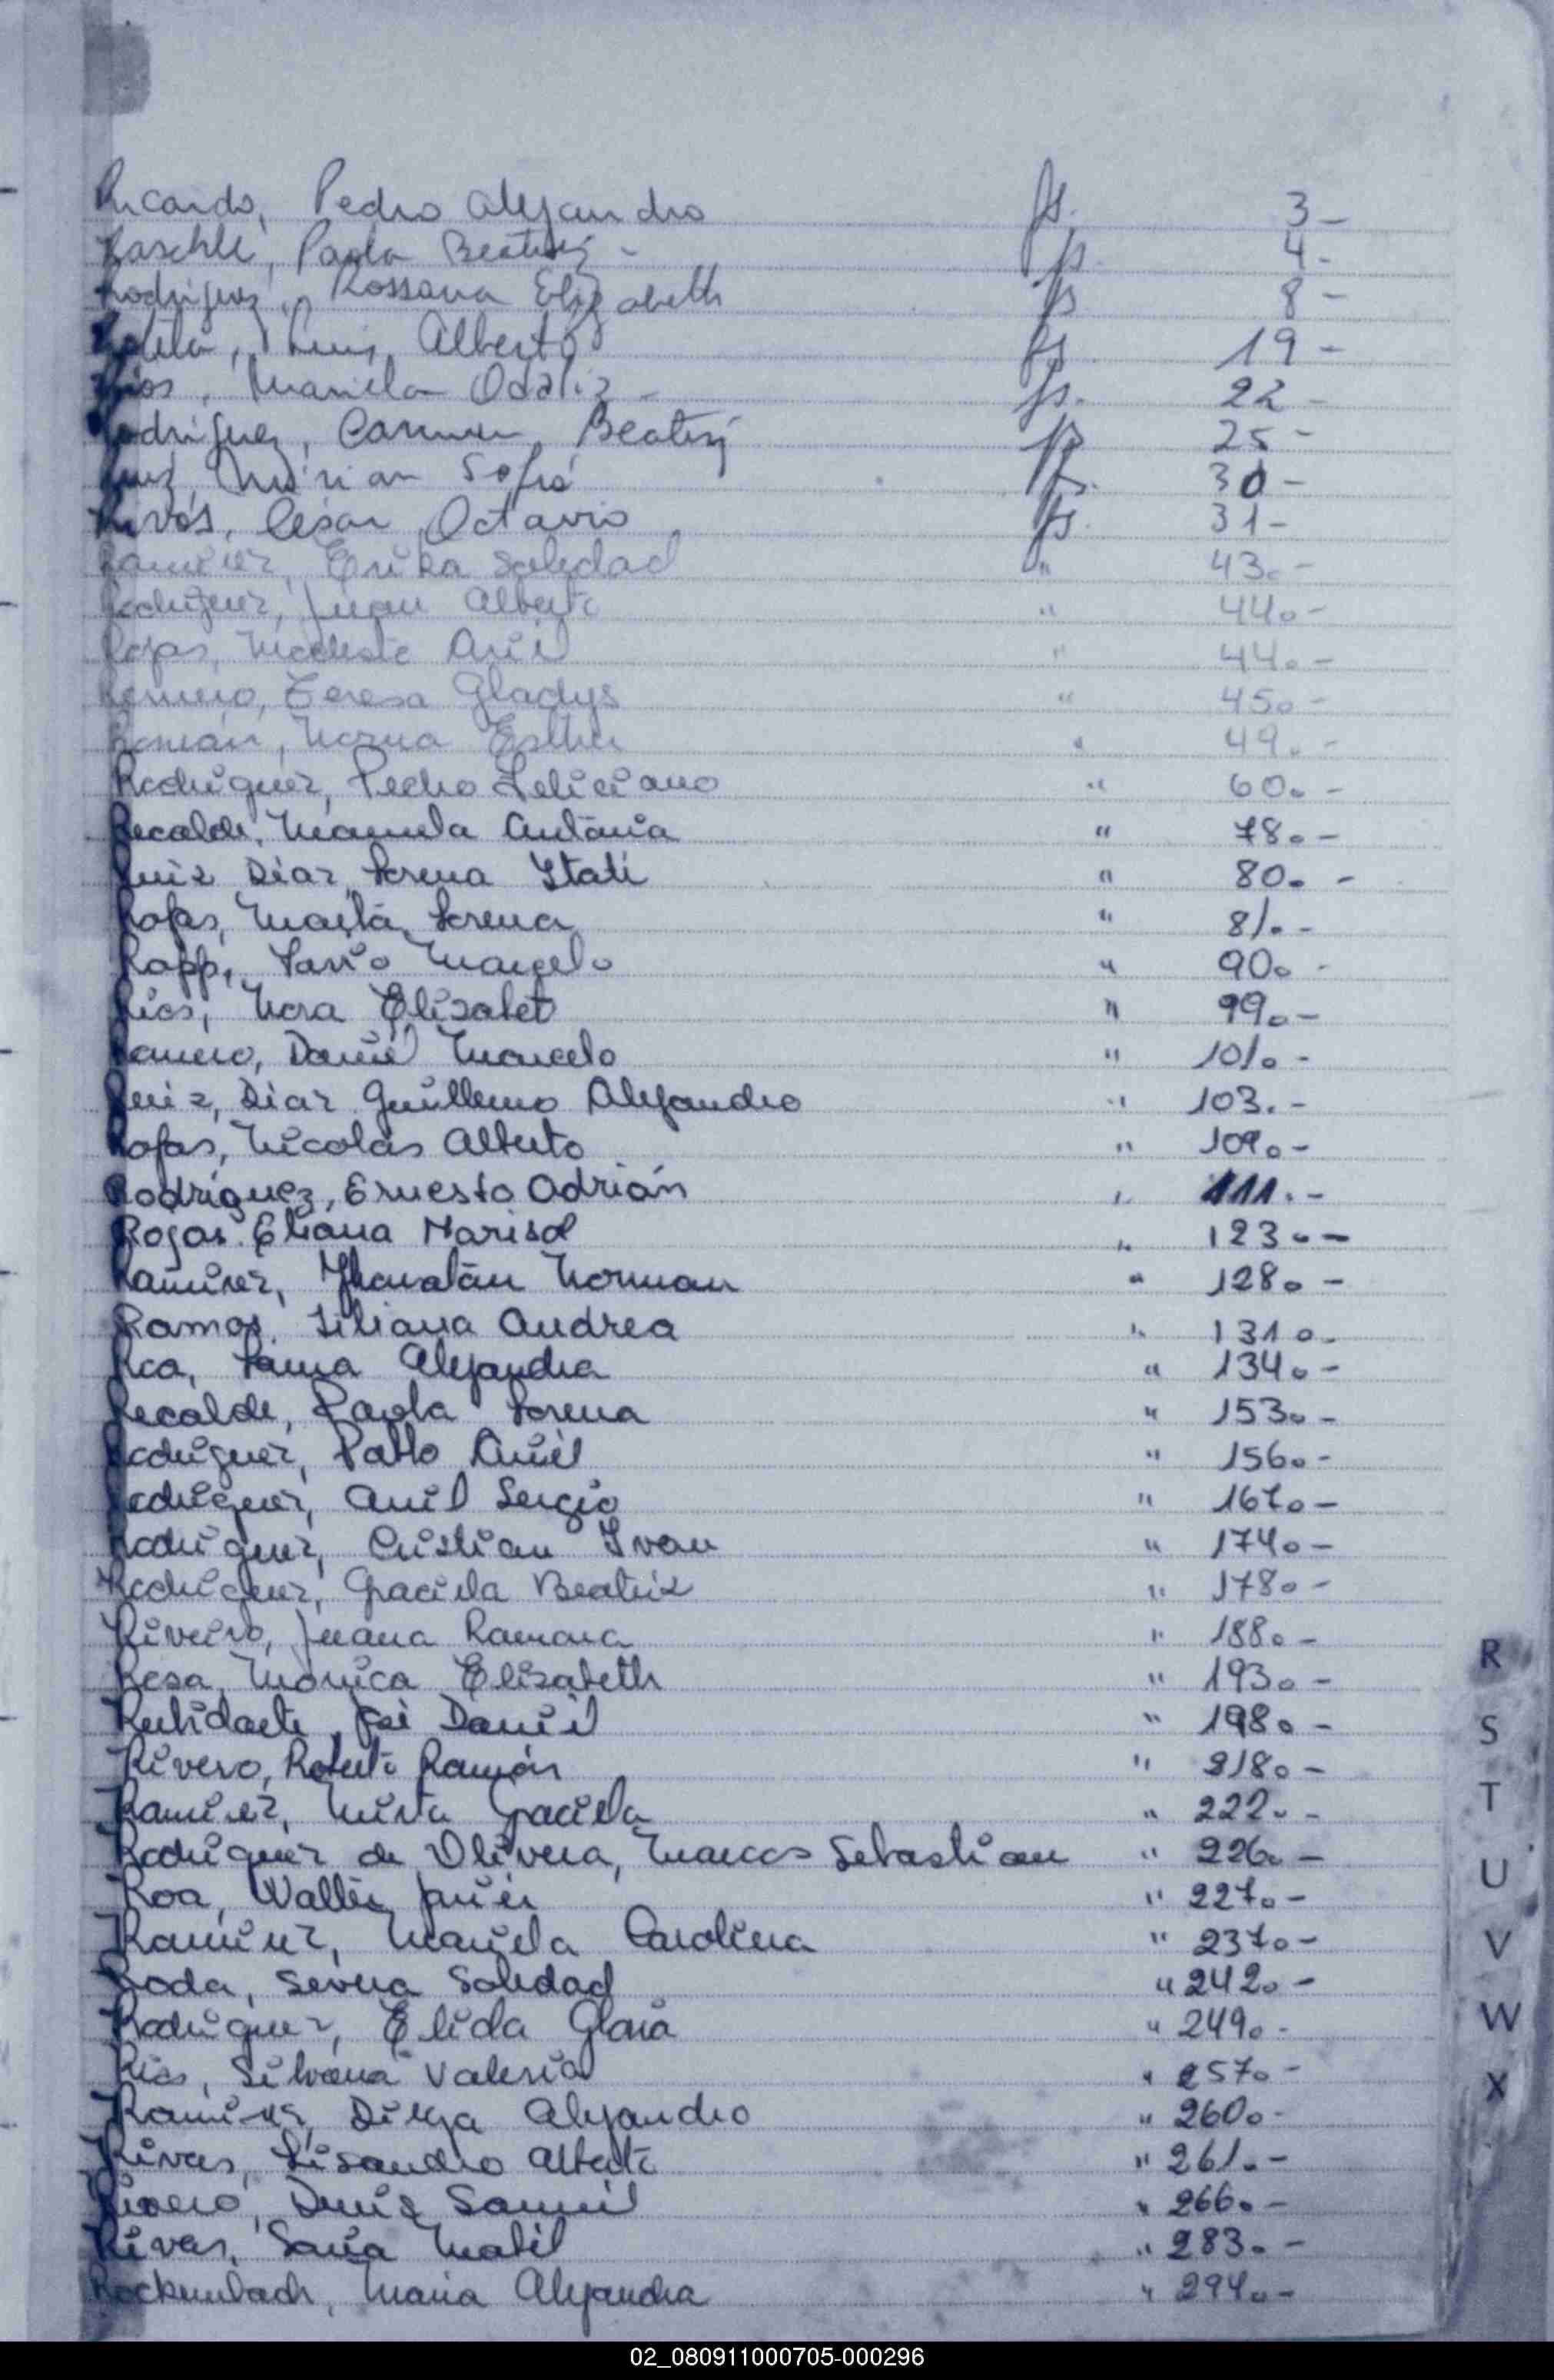 Ricardo, Pedro Alejandro fs. 3-
Raschle, Paola Beatriz - fs. 4-
Rodriguez, Rossana Elizabeth fs 8-
Luis Alberto fs. 19-
Rios, Mariela Odaliz - fs. 22-
Rodriguez, Carmen Beatriz fs 25-
Ruiz, Mirian Sofia fs. 30-
Rivas, César Octavio fs. 31-
Ramirez, Erika Soledad " 43.-
Rodriguez, Juan Alberto " 44.-
Rojas, Modesto Ariel " 44.-
Romero, Teresa Gladys " 45.-
Román, Norma Esther " 49.-
Rodriguez, Pedro Feliciano " 60.-
Recalde, Manuela Antonia " 78.-
Ruiz Diaz, Lorena Itati " 80.-
Rojas, Maria Lorena " 81.-
Rapp, Marcelo " 90.-
Rios, Nora Elizabet " 99.-
Romero, Daniel Marcelo " 101.-
Ruiz, Diaz Guillermo Alejandro " 103.-
Rojas, Nicolás Alberto " 109.-
Rodríguez, Ernesto Adrián " 111.-
Rojas Eliana Marisol " 123.-
Ramirez, Jhonatan Norman " 128.-
Ramos, Liliana Andrea " 131.-
Alejandra " 134.-
Recalde, Paola Lorena " 153.-
Rodriguez, Pablo Ariel " 156.-
Rodriguez, Ariel Sergio " 167.-
Rodriguez, Cristian Ivan " 174.-
Rodriguez, Graciela Beatriz " 178.-
Riveiro, Juana Ramona " 188.-
Mónica Elizabeth " 193.-
José Daniel " 198.-
Rivero, Roberto Ramón " 218.-
Ramirez, Mirta Graciela " 222.-
Rodriguez de Olivera, Marcos Sebastian " 226.-
Roa, Walter Javier " 227.-
Ramirez, Mariela Carolina " 237.-
Roda, Soledad " 242.-
Rodriguez, Elida Gloria " 249.-
Rios, Silvana Valeria " 257.-
Ramirez, Diego Alejandro " 260.-
Rivas, Lisandro Alberto " 261.-
Rivero, Denis Samuel " 266.-
Rivas, Sonia Mabel " 283.-
Rockembach, Maria Alejandra " 294.-
R
S
T
U
V
W
X
02_080911000705-000296